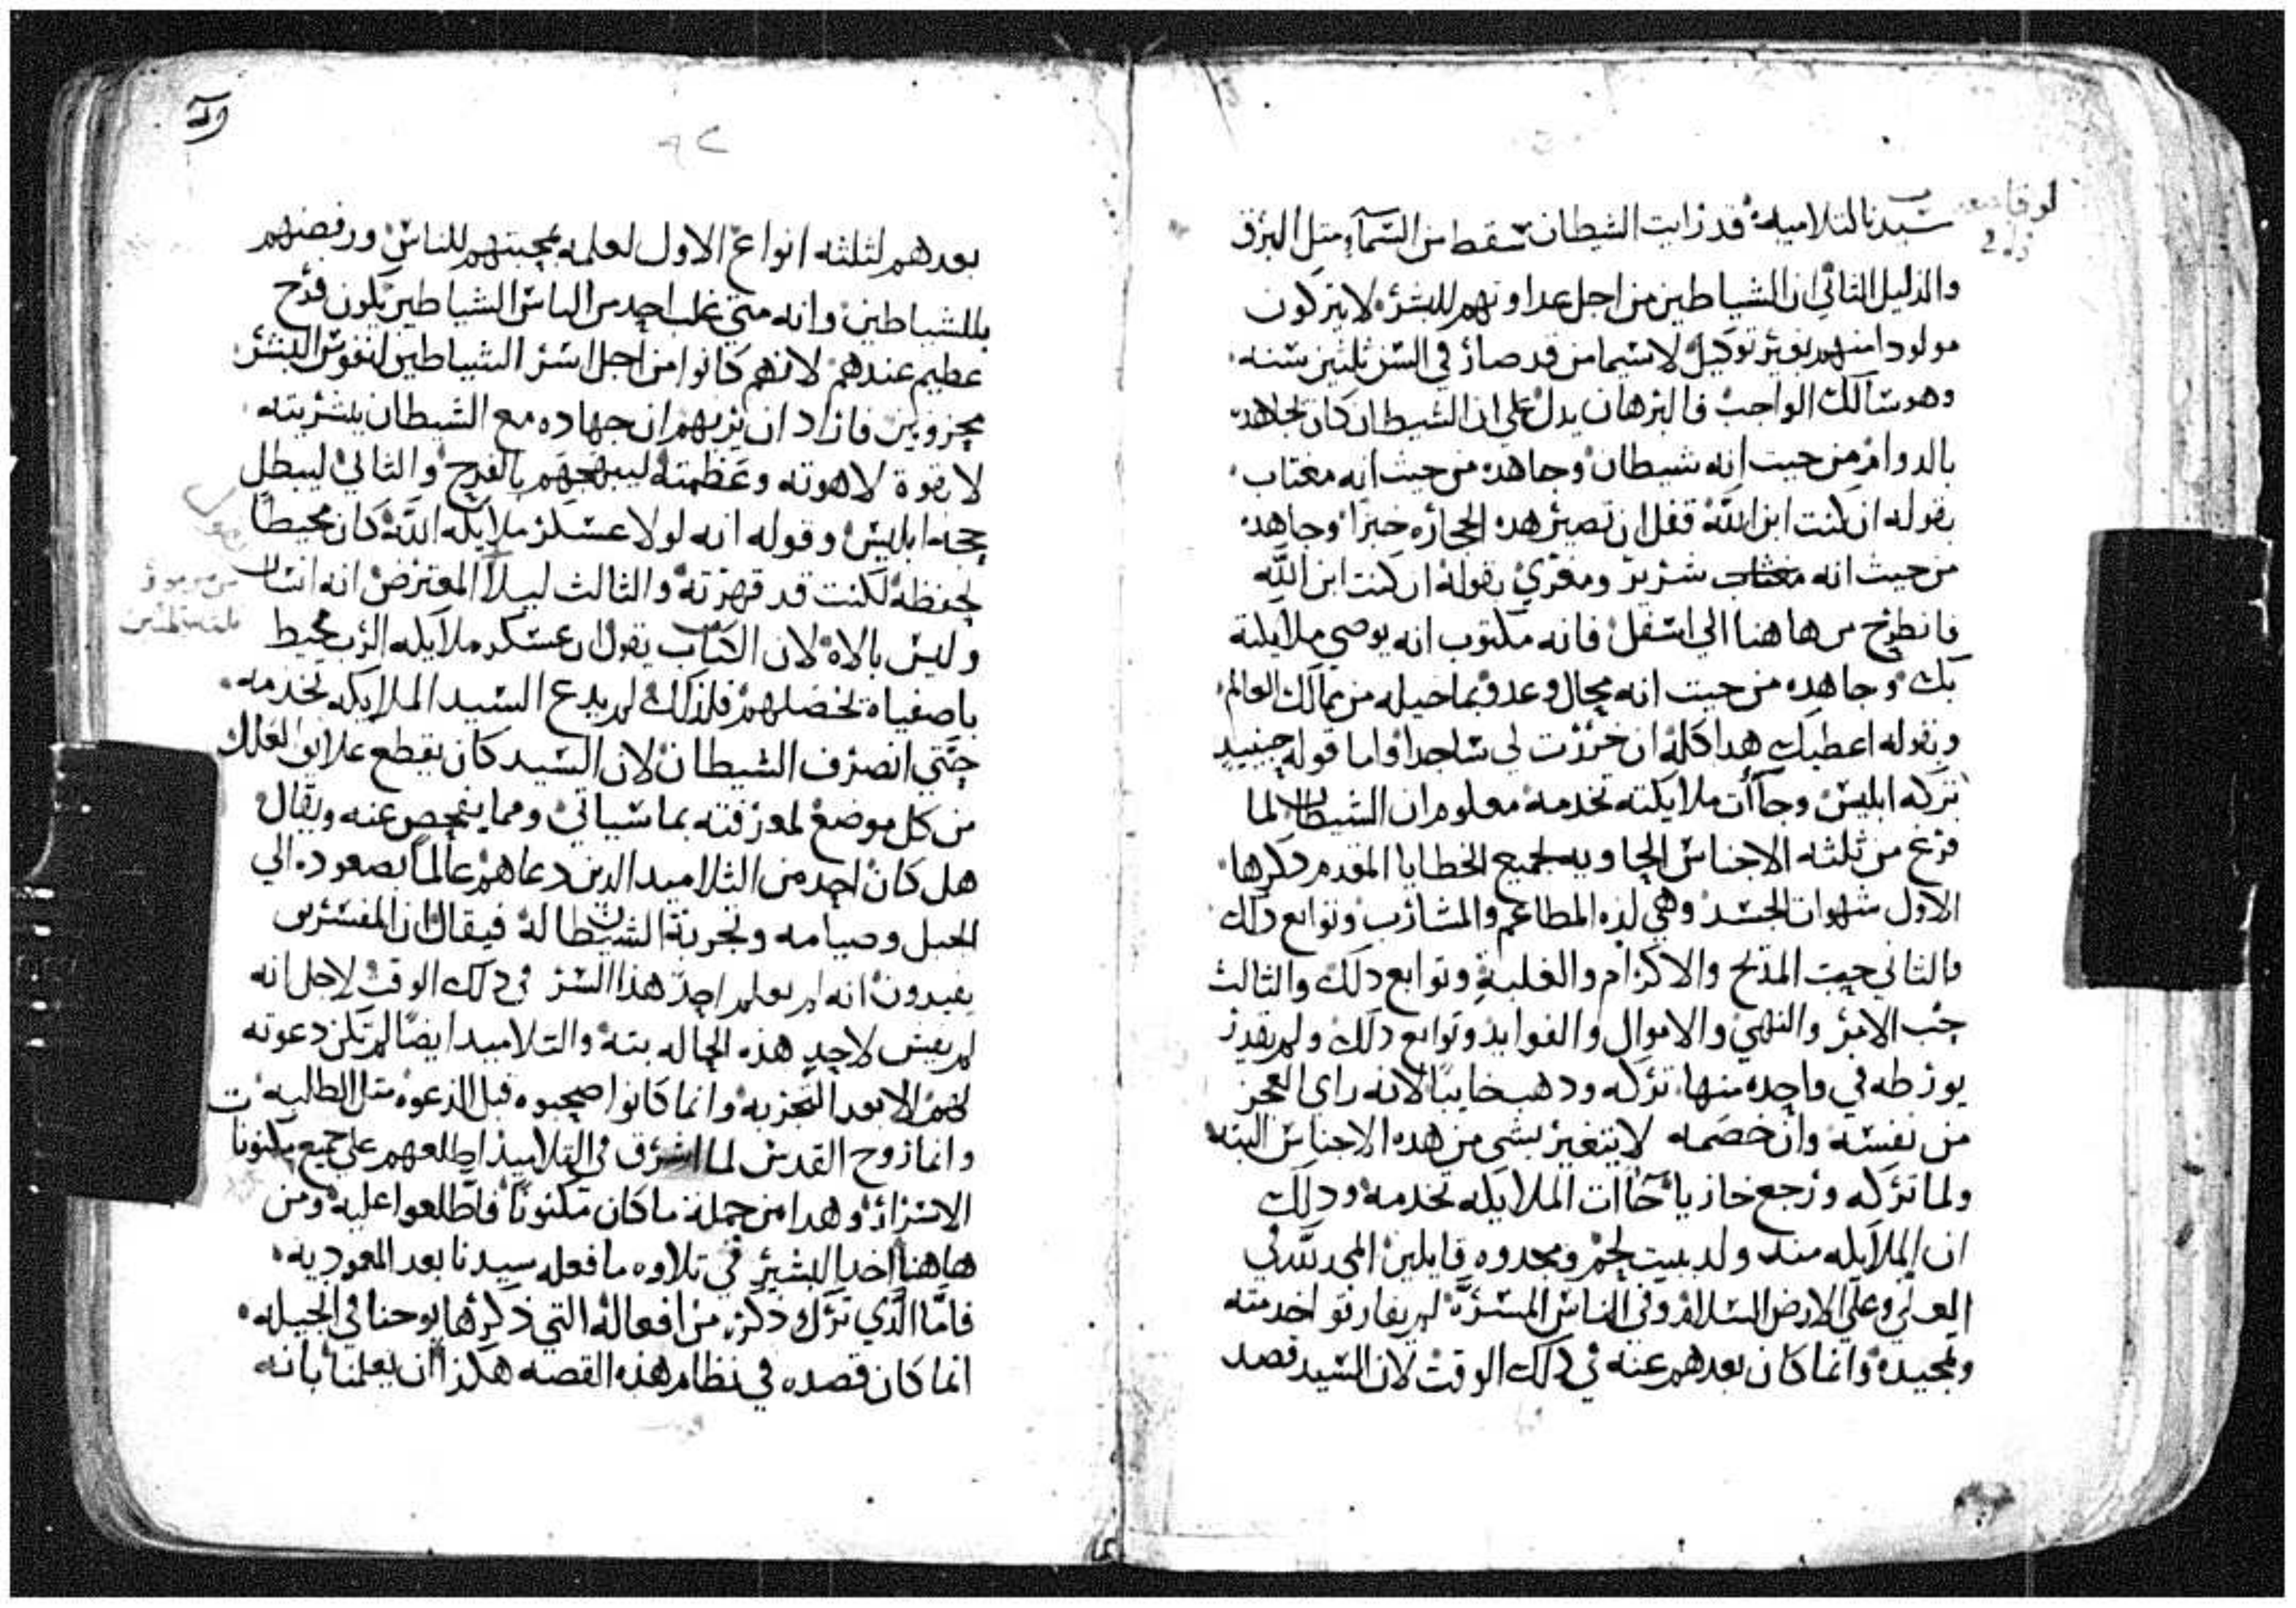 لوقا
سيدنا لتلاميده قد رايت الشيطان سقط من السمآء متل البرق
والدليل التاني ان الشياطين من اجل عداوتهم للبشر لا يتركون
مولودا منهم بغير توكيل لاسيما من قد صار في السن تلتين سنه
وهو سالك الواجب فالبرهان يدل علي ان الشيطان كان يجاهده
بالدوام من حيت انه شيطان وجاهده من حيت انه مغتاب
بقوله ان كنت ابن الله فقل ان تصير هده الحجاره خبزا وجاهده
من حيث انه مغتاب شرير ومغري بقوله ان كنت ابن الله
فانطرح من هاهنا الي اسفل فانه مكتوب انه يوصي ملايكته
بك وجاهده من حيت انه محال وعدو بما خيله من ممالك العالم
وبقوله اعطيك هدا كله ان خررت لي ساجدا واما قوله حينيد
تركه ابليس وجآأت ملايكته تخدمه معلوم ان الشيطان لما
فرغ من تلثه الاجناس الحاويه لجميع الخطايا المقدم دكرها
الاول شهوات الجسد وهي لده المطاعم والمشارب وتوابع دلك
والتاني حب المدح والاكرام والغلبة وتوابع دلك والثالث
حب الامر والنهي والاموال والفوايد وتوابع دلك ولم يقدر
يورطه في واحده منها تركه ودهب خايبا لانه راى العجز
من نفسه وان خصمه لا يتغير بشي من هده الاجناس البته
ولما تركه ورجع خازيا جاأت الملايكه تخدمه ودلك
ان الملايكه مند ولد ببيت لحم ومجدوه قايلين المجد لله في
العلي وعلي الارض السلام وفي الناس المسرة لم يفارقوا خدمته
وتمجيده وانما كان بعدهم عنه في دلك الوقت لان السيد قصد
بعدهم لثلثه انواع الاول لعلمه بمحبتهم للناس ورفضهم
للشياطين وانه متي غلب احد من الناس الشياطين يكون فرح
عظيم عندهم لانهم كانوا من اجل اسر الشياطين لنفوس البشر
محزونين فاراد ان يريهم ان جهاده مع الشيطان ببشريته
لا بقوة لاهوته وعظمته ليبهجهم بالفرح والتاني ليبطل
حجه ابليس وقوله انه لولا عسكر ملايكه الله كان محيطا
بحفظه لكنت قد قهرته والثالث ليلا المعترض انه انسان
وليس بالاه لان الكتاب يقول ان عسكر ملايكه الرب محيط
باصفياه تخصلهم فلذلك لم يدع السيد الملايكه تخدمه
حتي انصرف الشيطان لان السيد كان يقطع علايق العلل
من كل موضع لمعرفته بما سياتي ومما يفحص عنه ويقال
هل كان احد من الثلاميد الدين دعاهم عالما بصعوده الي
الجبل وصيامه وتجربة الشيطان له فيقال ان المفسرين
يفيدون انه لم يعلم احد هذا السر في دلك الوقت لاجل انه
لم يفش لاحد هذه الحاله بته والتلاميد ايضا لم تكن دعوته
لهم الا بعد التجربه وانما كانوا صحبوه قبل الدعوه متل الطالبه
وانما روح القدس لما اشرق في التلاميذ اطلعهم علي جميع مكنونات
الاسرار وهدا من جملة ما كان مكنونا فاطلعوا عليه ومن
هاهنا اخد البشير في تلاوه ما فعله سيدنا بعد المعموديه
فاما الذي ترك دكره من افعاله التي ذكرها يوحنا في انجيله
انما كان قصده في نظام هذه القصه هكذا ان يعلمنا بانه